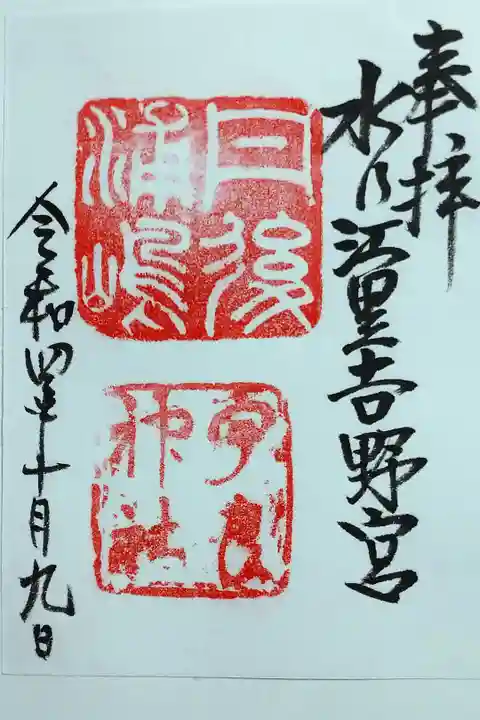 奉拝
水乃江里吉野宮
丹後
浦嶋
神社
令和四年十月九日